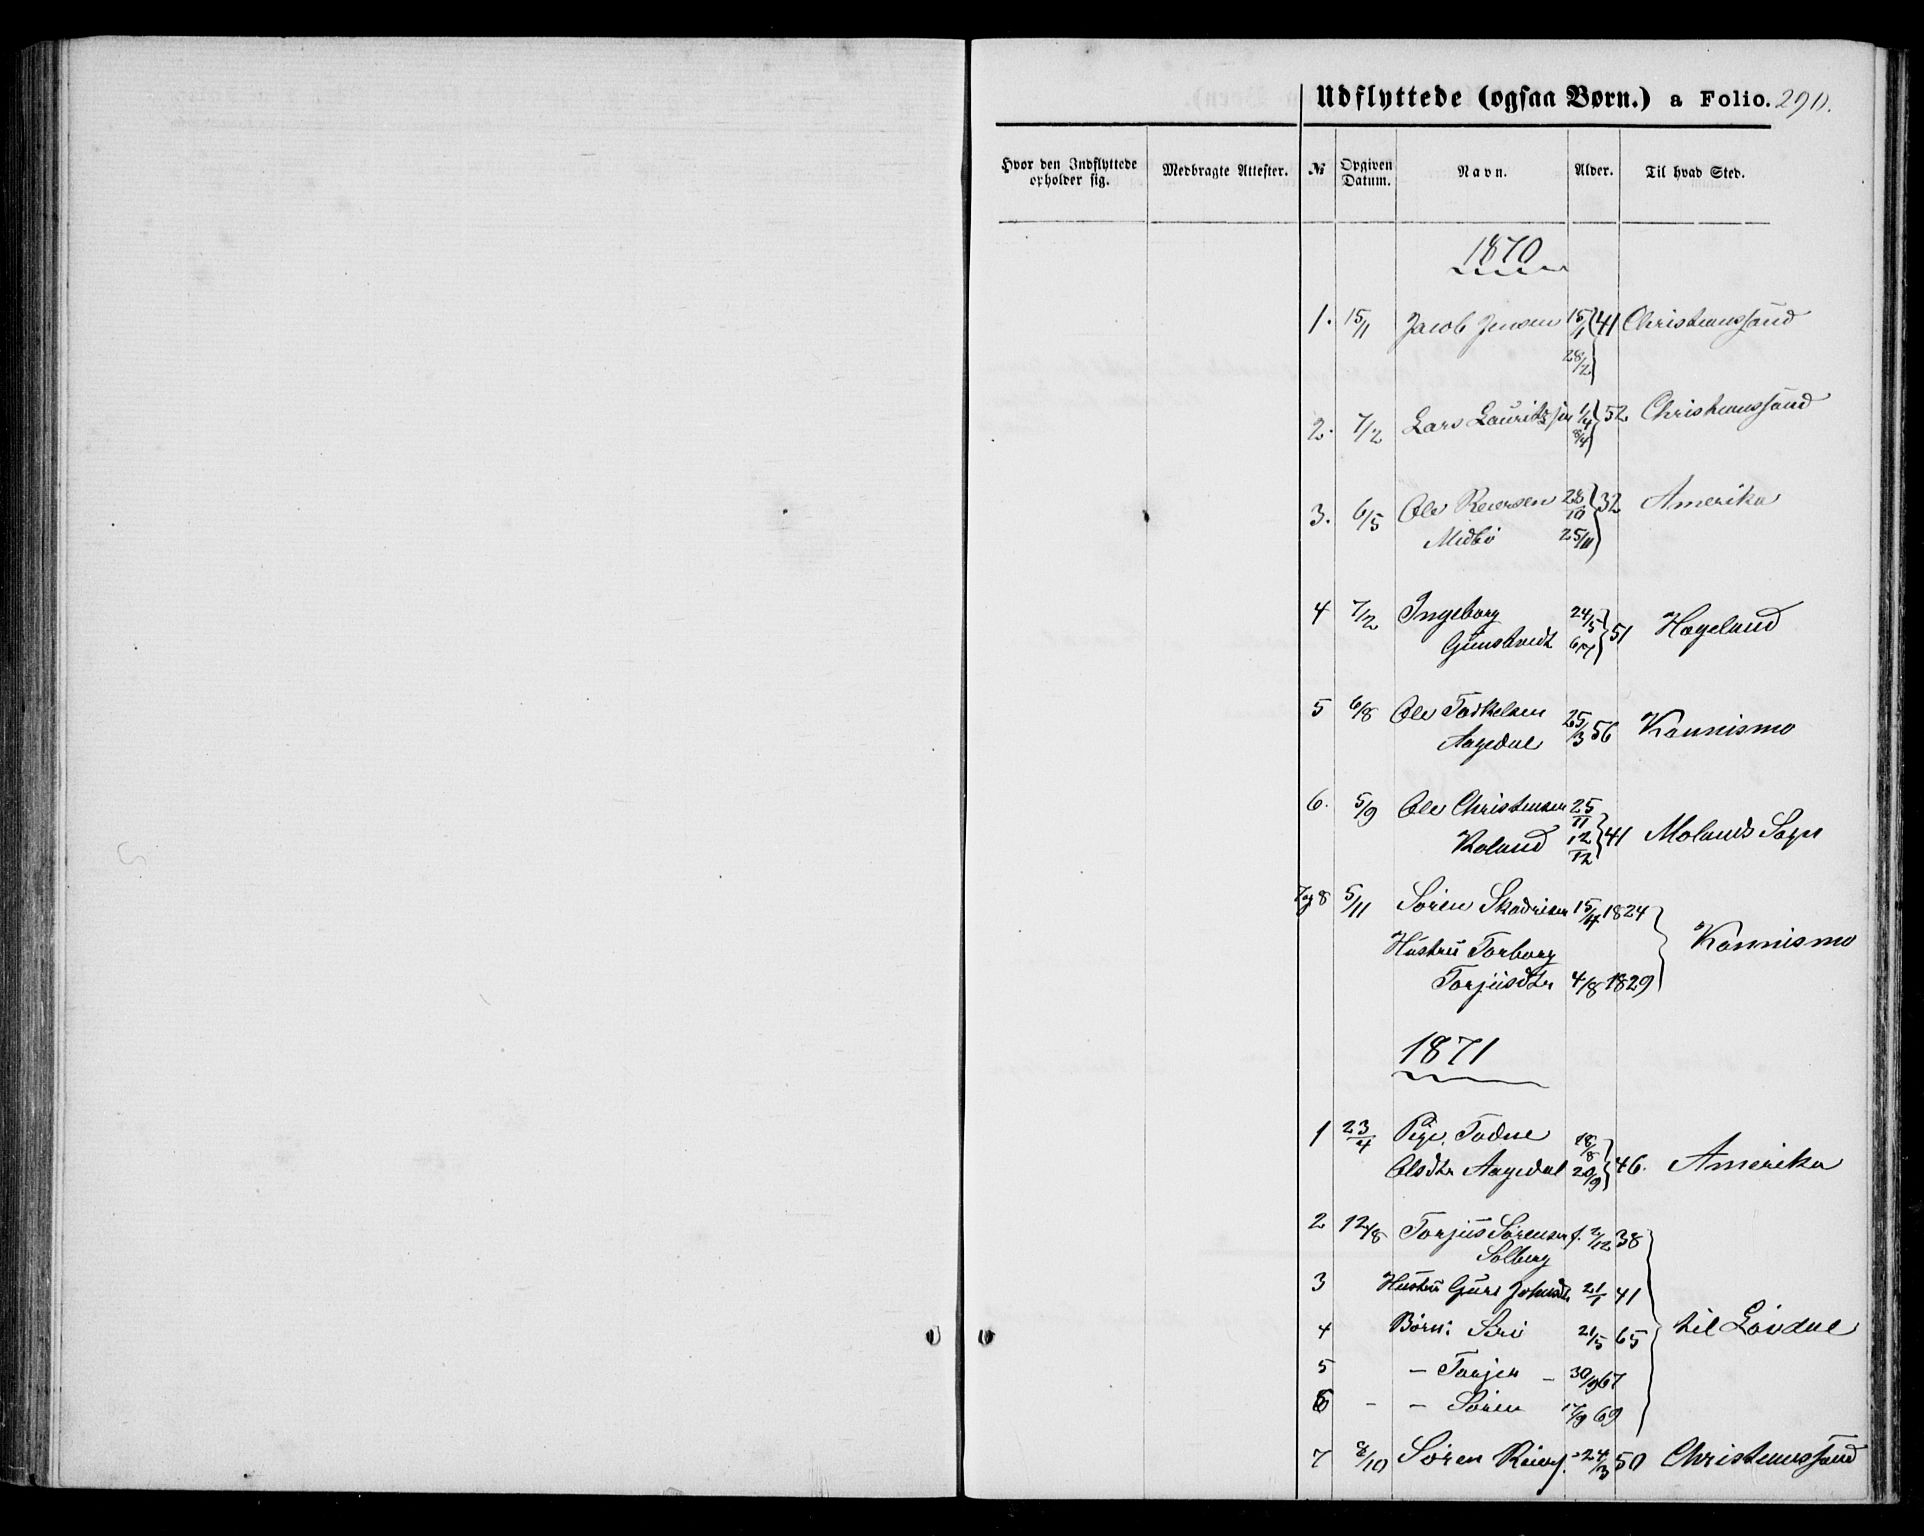 Udflyttede (ogsaa Børn.) a Folio. 290.
Hvor den Indflyttede opholder sig.
Medbragte Attester.
No
Opgiven Datum.
Navn.
Alder.
Til hvad Sted.
1870
1. 15/1 Jacob Jensen 15/1 28/2 } 41 Christianssand
2. 7/2 Lars Lauritssen 1/4 8/4 } 52 Christianssand
3. 6/5 Ole Reiersen 28/10 } 32 Amerika
Midbö 25/11
4 7/2 Ingeborg 24/5 } 51 Hægeland
5 6/8 Ole Torkelsen 25/3 56 Konnismo
Aagedal
6. 5/9 Ole Christensen 25/11 } 41 Molands Sogn
Roland 12/12
7 og 8 5/11 Sören 15/4 1824 } Konnismo
Hustru Torborg
Torjusdtr 4/8 1829
1871
1 23/4 Pige. Todne 18/8 } 46. Amerika
Olsdtr Aagedal 20/9
2 12/8 Torjus Sörensen f. 2/12 38 } til Lövdal
Solberg
3 Hustru Guro Johnsdtr 21/1 41
4 Børn: Siri 21/5 65
5 – Torjer – 30/9 67
6 – – Sören 17/9 69
7 8/10 Sören Reiers. 24/3 50 Christianssand